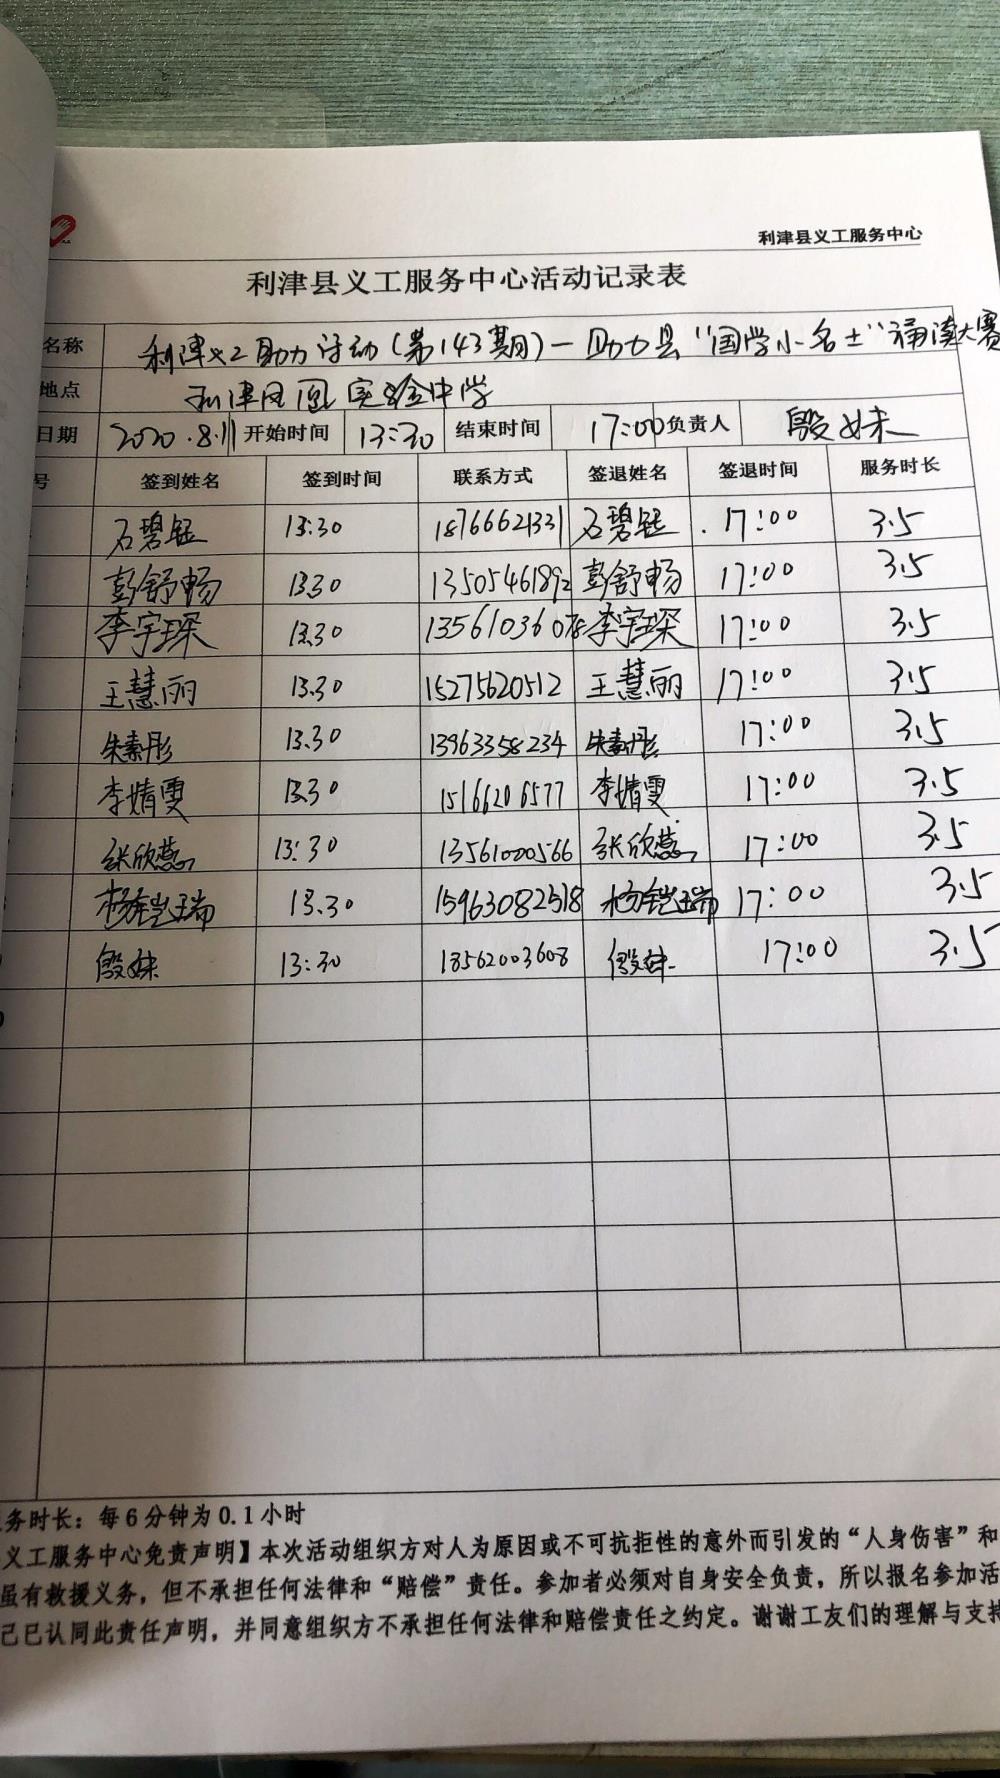 利津县义工服务中心
利津县义工服务中心活动记录表
名称 利津义工助力活动(第143期)—助力县“国学小名士”诵读大赛
地点 利津凤凰实验中学
日期 2020.8.11 开始时间 13:30 结束时间 17:00 负责人 殷妹
号 签到姓名 签到时间 联系方式 签退姓名 签退时间 服务时长
石碧钰 13:30 18766621331 石碧钰 17:00 3.5
彭舒畅 13.30 13505461892 彭舒畅 17:00 3.5
李宇琛 13.30 13561036078 李宇琛 17:00 3.5
王慧丽 13.30 15275620512 王慧丽 17:00 3.5
朱素彤 13.30 13963358234 朱素彤 17:00 3.5
李婧雯 13.30 15166206577 李婧雯 17:00 3.5
张欣蕊 13:30 13561000566 张欣蕊 17:00 3.5
杨铠瑞 13.30 15963082518 杨铠瑞 17:00 3.5
殷妹 13:30 18562003608 殷妹 17:00 3.5
务时长：每6分钟为0.1小时
义工服务中心免责声明】本次活动组织方对人为原因或不可抗拒性的意外而引发的“人身伤害”和
虽有救援义务，但不承担任何法律和“赔偿”责任。参加者必须对自身安全负责，所以报名参加活
己已认同此责任声明，并同意组织方不承担任何法律和赔偿责任之约定。谢谢工友们的理解与支持